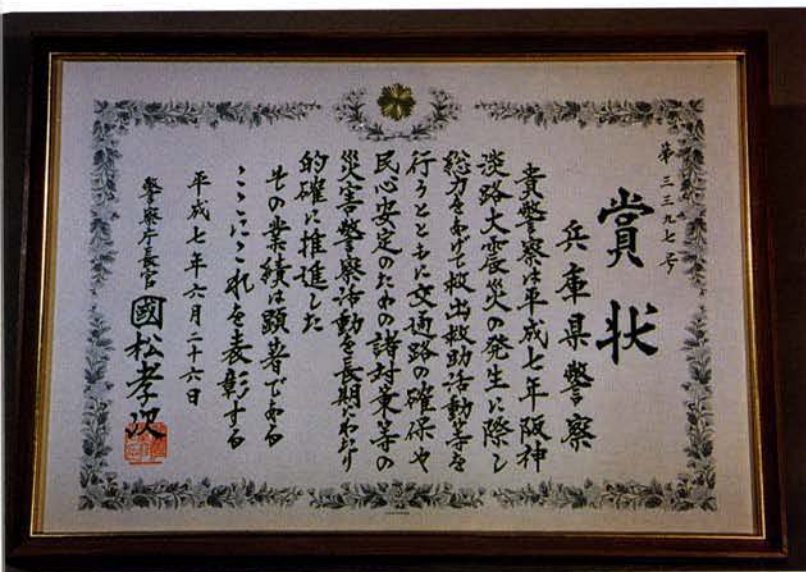 第三三九七号
賞状
兵庫県警察
貴警察は平成七年阪神
淡路大震災の発生に際し
総力をあげて救出救助活動等を
行うとともに交通路の確保や
民心安定のための諸対策等の
災害警察活動を長期にわたり
的確に推進した
その業績は顕著である
ここにこれを表彰する
平成七年六月二十六日
警察庁長官 國松孝次